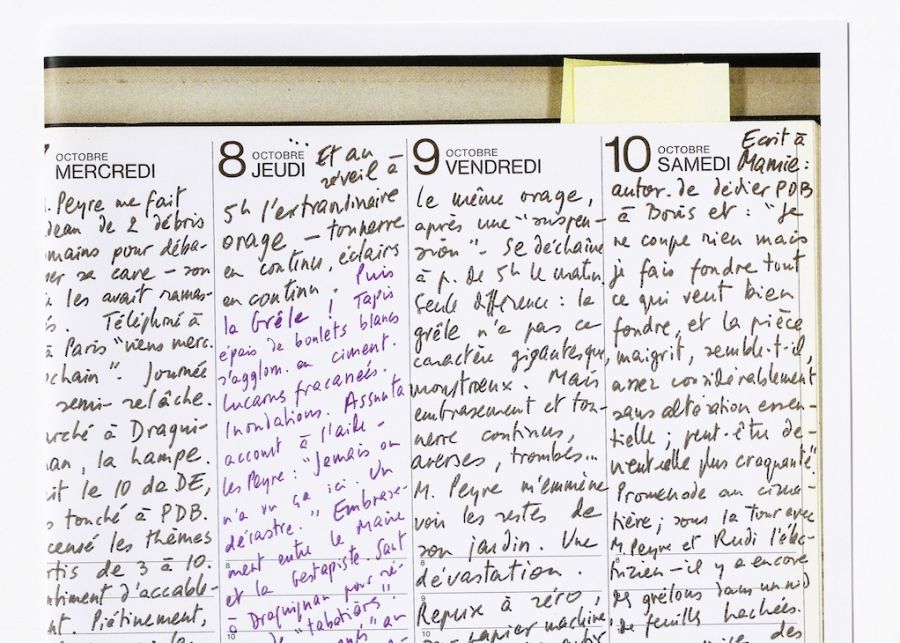 OCTOBRE
MERCREDI
. Peyre me fait
deau de 2 débris
mains pour déba-
ser sa cave – son
les avait ramas-
s. Téléphoné à
à Paris "viens merc.
chain". Journée
semi-relâche.
rché à Dragui-
an, la hampe.
it le 10 da DE,
s touché à PDB.
censé les thèmes
rtis de 3 à 10.
ntiment d'accable-
nt. Piétinement,
8 OCTOBRE
JEUDI
Et au
réveil à
5h l'extraordinaire
orage – tonnerre
en continu, éclairs
en continu. Puis
la Grêle ! Tapis
épais de boulets blancs
s'agglom. en ciment.
Lucarnes fracassées.
Inondations. Assunta
accourt à l'aide –
les Peyre : "Jamais on
n'a vu ça ici. Un
désastre." Embrasse-
ment entre le Maire
8
et la Gestapiste. Saut
à Draguignan pour ré-
10
de "tabatières".
9 OCTOBRE
VENDREDI
Le même orage,
après une "suspen-
sion". Se déchaîne
à p. de 5h le matin.
Seule différence : la
grêle n'a pas ce
caractère gigantesque,
monstrueux. Mais
embrasement et ton-
nerre continus,
averses, trombes...
M. Peyre m'emmène
voir les restes de
son jardin. Une
8
dévastation.
9
Repux à zéro,
10
papier machine
10 OCTOBRE
SAMEDI
Ecrit à
Mamie :
autor. de dédier PDB
à Boris et : "Je
ne coupe rien mais
je fais fondre tout
ce qui veut bien
fondre, et la pièce
maigrit, semble-t-il,
assez considérablement
sans altération essen-
tielle ; peut-être de-
vient-elle plus craquante".
Promenade au cime-
tière ; sous la tour avec
M. Peyre et Rudi l'élec-
8
tricien – il y a encore
des grêlons dans un nid
de feuilles hachées.
des